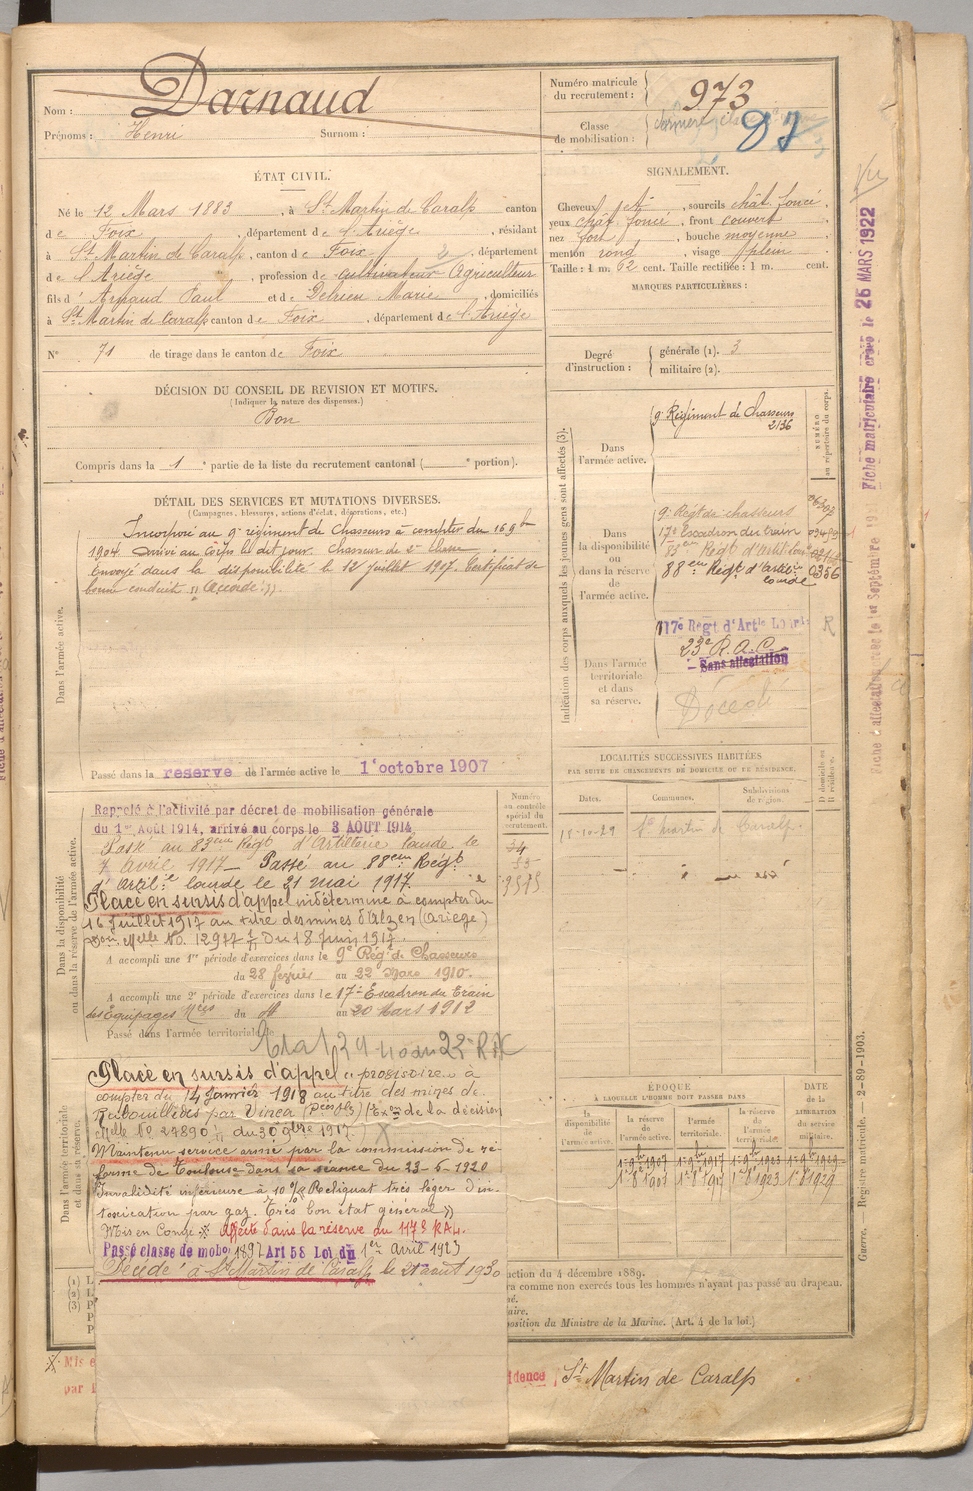 Nom : Darnaud
Prénoms : Henri Surnom :
Numéro matricule du recrutement : 973
Classe de mobilisation :
ÉTAT CIVIL.
Né le 12 Mars 1883, à St Martin de Caralp canton
de Foix, département de l'Ariège, résidant
à St Martin de Caralp, canton de Foix, département
de l'Ariège, profession de cultivateur Agriculteur
fils d' Arnaud Paul et de Delrieu Marie, domiciliés
à St Martin de Caralp canton de Foix, département de l'Ariège
N° 71 de tirage dans le canton de Foix
SIGNALEMENT.
Cheveux et, sourcils chât foncé,
yeux chât foncé, front couvert,
nez fort, bouche moyenne,
menton rond, visage plein
Taille : 1 m. 62 cent. Taille rectifiée : 1 m. cent.
MARQUES PARTICULIÈRES :
Degré d'instruction : générale (1). 3
militaire (2).
DÉCISION DU CONSEIL DE REVISION ET MOTIFS.
(Indiquer la nature des dispenses.)
Bon
Compris dans la 1e partie de la liste du recrutement cantonal ( e portion).
DÉTAIL DES SERVICES ET MUTATIONS DIVERSES.
(Campagnes, blessures, actions d'éclat, décorations, etc.)
Dans l'armée active.
Incorporé au 9e régiment de Chasseurs à compter du 16 9bre
1904. Arrivé au Corps le dit jour. Chasseur de 2e Classe.
Envoyé dans la disponibilité le 12 juillet 1907. Certificat de
bonne conduite "Accordé".
Passé dans la reserve de l'armée active le 1er octobre 1907
Indication des corps auxquels les jeunes gens sont affectés (3).
NUMÉRO au répertoire du corps.
Dans l'armée active.
9e Régiment de Chasseurs
2136
Dans la disponibilité ou dans la réserve de l'armée active.
9e Régt de chasseurs
17e Escadron du train
83em Régt d'Artil lourde
88em Régt d'Artilrie lourde 0356
Dans l'armée territoriale et dans sa réserve.
117e Regt d'Artie Lourde
23e R.A.C.
Sans affectation
Décédé
LOCALITÉS SUCCESSIVES HABITÉES
PAR SUITE DE CHANGEMENTS DE DOMICILE OU DE RÉSIDENCE.
Dates. Communes. Subdivisions de région. D domicile ou R résidence.
St Martin de Caralp.
Dans la disponibilité ou dans la réserve de l'armée active.
Numéro au contrôle spécial du recrutement.
Rappelé à l'activité par décret de mobilisation générale
du 1er Août 1914, arrivé au corps le 3 AOUT 1914
Passé au 83em Régt d'Artillerie lourde le
7 avril 1917 – Passé au 88em Régt
d'Artilie lourde le 21 mai 1917.
Placé en sursis d'appel indéterminé à compter du
16 Juillet 1917 au titre des mines d'Alzen (Ariège)
Don Melle No. 12977 du 18 Juin 1917.
A accompli une 1re période d'exercices dans le 9e Régt de Chasseurs
du 28 février au 22 Mars 1910.
A accompli une 2e période d'exercices dans le 17e Escadron du Train
des Equipages Mres du au 20 Mars 1912
Passé dans l'armée territoriale le
Dans l'armée territoriale et dans sa réserve.
Placé en sursis d'appel provisoire à
compter du 14 Janvier 1918 au titre des mines de
par Vinca (Pces Ols) de la décision
Melle No 27890 du 30 9bre 1917.
Maintenu service armé par la commission de ré-
forme de Toulouse dans sa séance du 23-6-1920
Invalidité inférieure à 10 % Reliquat très léger d'in-
toxication par gaz. Très bon état général »
Mis en Congé. Affecté dans la réserve du 117e RAL.
Passé classe de mobe 1897 Art 58 Loi du 1er Avril 1923
Décédé à St Martin de Caralp le 21 août 1930
ÉPOQUE
À LAQUELLE L'HOMME DOIT PASSER DANS
la disponibilité de l'armée active. la réserve de l'armée active. l'armée territoriale. la réserve de l'armée territoriale. DATE de la LIBÉRATION du service militaire.
1er 8bre 1907 1er 8bre 1917 1er 8bre 1923 1er 8bre 1929
uction du 4 décembre 1889.
ra comme non exercés tous les hommes n'ayant pas passé au drapeau.
position du Ministre de la Marine. (Art. 4 de la loi.)
Mis e
par l
idence St Martin de Caralp
Guerre. — Registre matricule. — 2-89-1903.
Vu
Fiche matriculaire créée le 25 MARS 1922